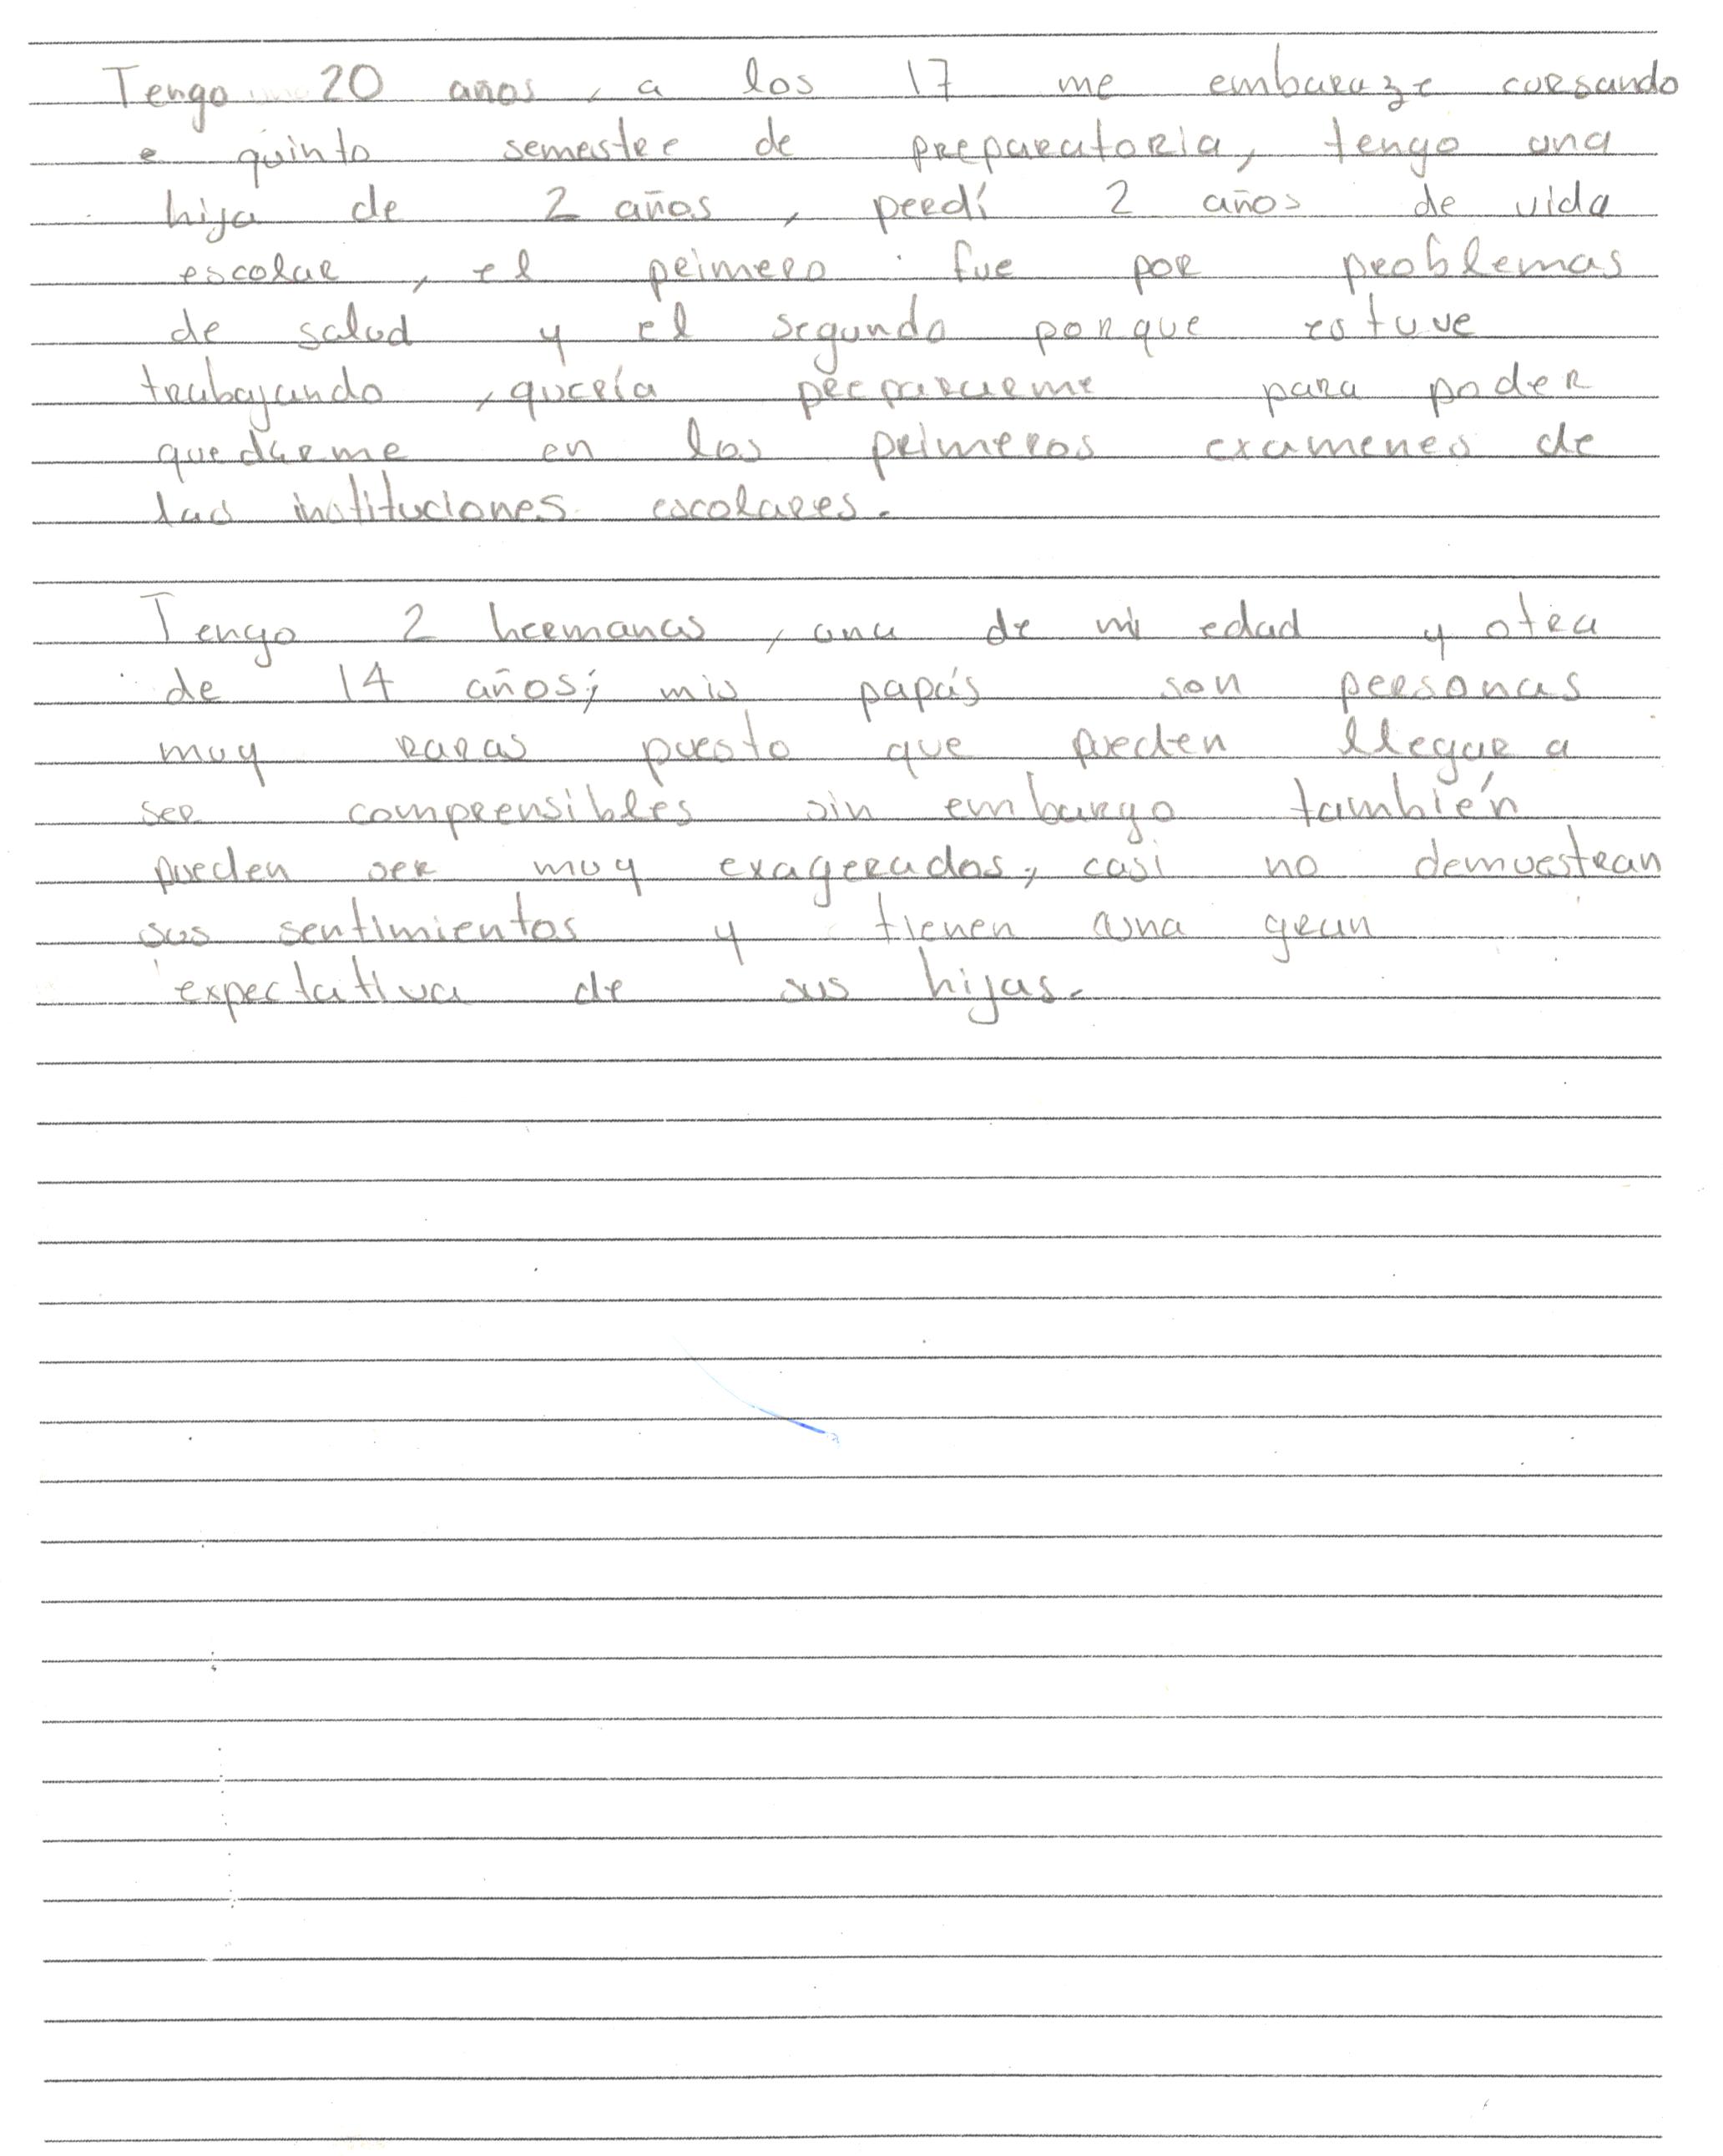 Tengo 20 años, a los 17 me embaraze cursando
e quinto semestre de preparatoria, tengo una
hija de 2 años, perdí 2 años de vida
escolar, el primero fue por problemas
de salud y el segundo porque estuve
trabajando, quería prepararme para poder
quedarme en los primeros examenes de
las instituciones escolares.
Tengo 2 hermanas, una de mi edad y otra
de 14 años; mis papás son personas
muy raras puesto que pueden llegar a
ser comprensibles sin embargo también
pueden ser muy exagerados, casi no demuestran
sus sentimientos y tienen una gran
expectativa de sus hijas.